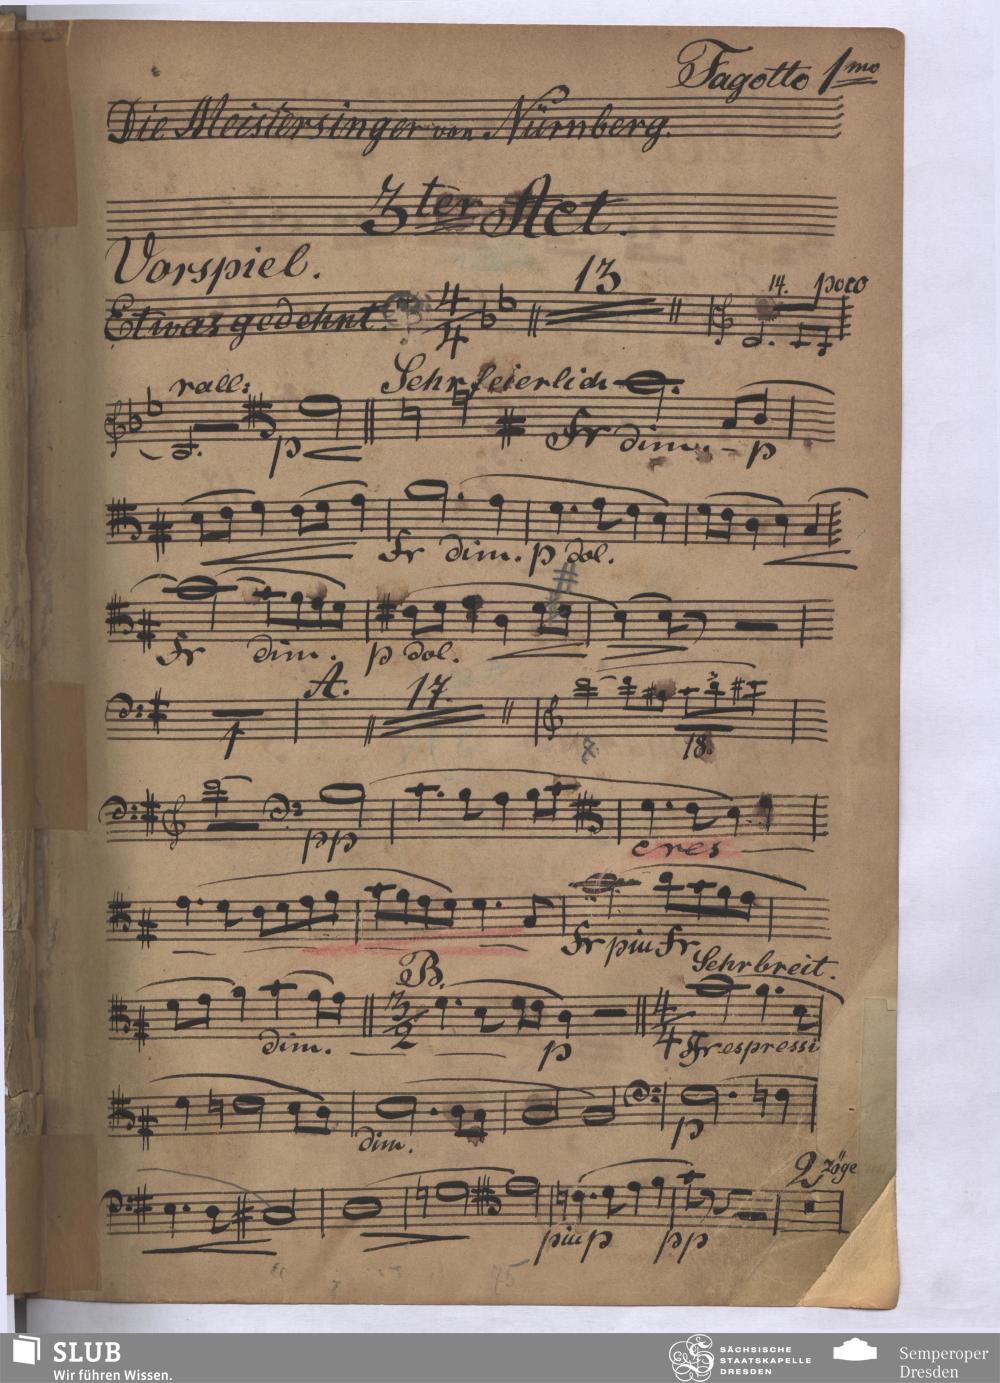 Fagotto 1mo
Die Meistersinger von Nürnberg.
3ter Act.
Vorspiel.
Etwas gedehnt. 4/4 13 14. poco
rall: Sehr feierlich
p Fr dim. - p
Fr dim. p dol.
Fr dim. p dol.
A. 17.
1 8. 18.
pp cres
Fr piu Fr
B. Sehr breit.
3/2 4/4
dim. p Fr. espressi
dim. p
2 Züge
piu p pp
75
SLUB
Wir führen Wissen.
SÄCHSISCHE
STAATSKAPELLE
DRESDEN
Semperoper
Dresden